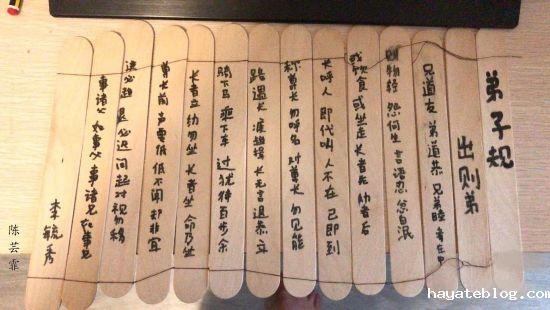 弟子规
出则弟
兄道友 弟道恭 兄弟睦 孝在中
财物轻 怨何生 言语忍 忿自泯
或饮食 或坐走 长者先 幼者后
长呼人 即代叫 人不在 己即到
称尊长 勿呼名 对尊长 勿见能
路遇长 疾趋揖 长无言 退恭立
骑下马 乘下车 过犹待 百步余
长者立 幼勿坐 长者坐 命乃坐
尊长前 声要低 低不闻 却非宜
进必趋 退必迟 问起对 视勿移
事诸父 如事父 事诸兄 如事兄
李毓秀
陈芸霏
hayateblog.com